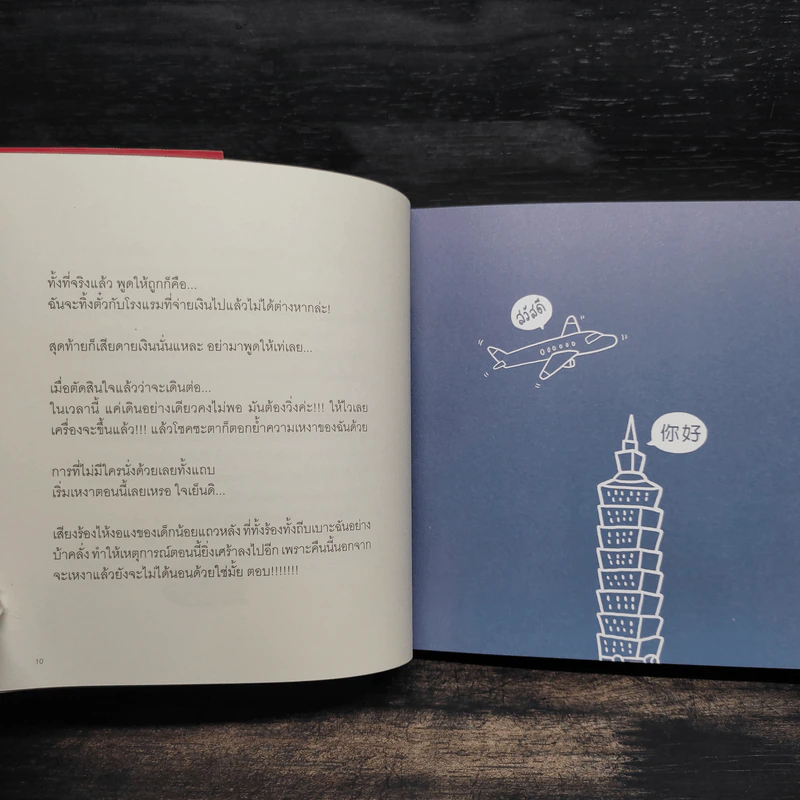 ทั้งที่จริงแล้ว พูดให้ถูกก็คือ...
ฉันจะทิ้งตั๋วกับโรงแรมที่จ่ายเงินไปแล้วไม่ได้ต่างหากล่ะ!
สุดท้ายก็เสียดายเงินนั่นแหละ อย่ามาพูดให้เท่เลย...
เมื่อตัดสินใจแล้วว่าจะเดินต่อ...
ในเวลานี้ แค่เดินอย่างเดียวคงไม่พอ มันต้องวิ่งค่ะ!!! ให้ไวเลย
เครื่องจะขึ้นแล้ว!!! แล้วโชคชะตาก็ตอกย้ำความเหงาของฉันด้วย
การที่ไม่มีใครนั่งด้วยเลยทั้งแถบ
เริ่มเหงาตอนนี้เลยเหรอ ใจเย็นดิ...
เสียงร้องไห้งอแงของเด็กน้อยแถวหลัง ที่ทั้งร้องทั้งถีบเบาะฉันอย่าง
บ้าคลั่ง ทำให้เหตุการณ์ตอนนี้ยิ่งเศร้าลงไปอีก เพราะคืนนี้นอกจาก
จะเหงาแล้วยังจะไม่ได้นอนด้วยใช่มั้ย ตอบ!!!!!!!
10
สวัสดี
你好